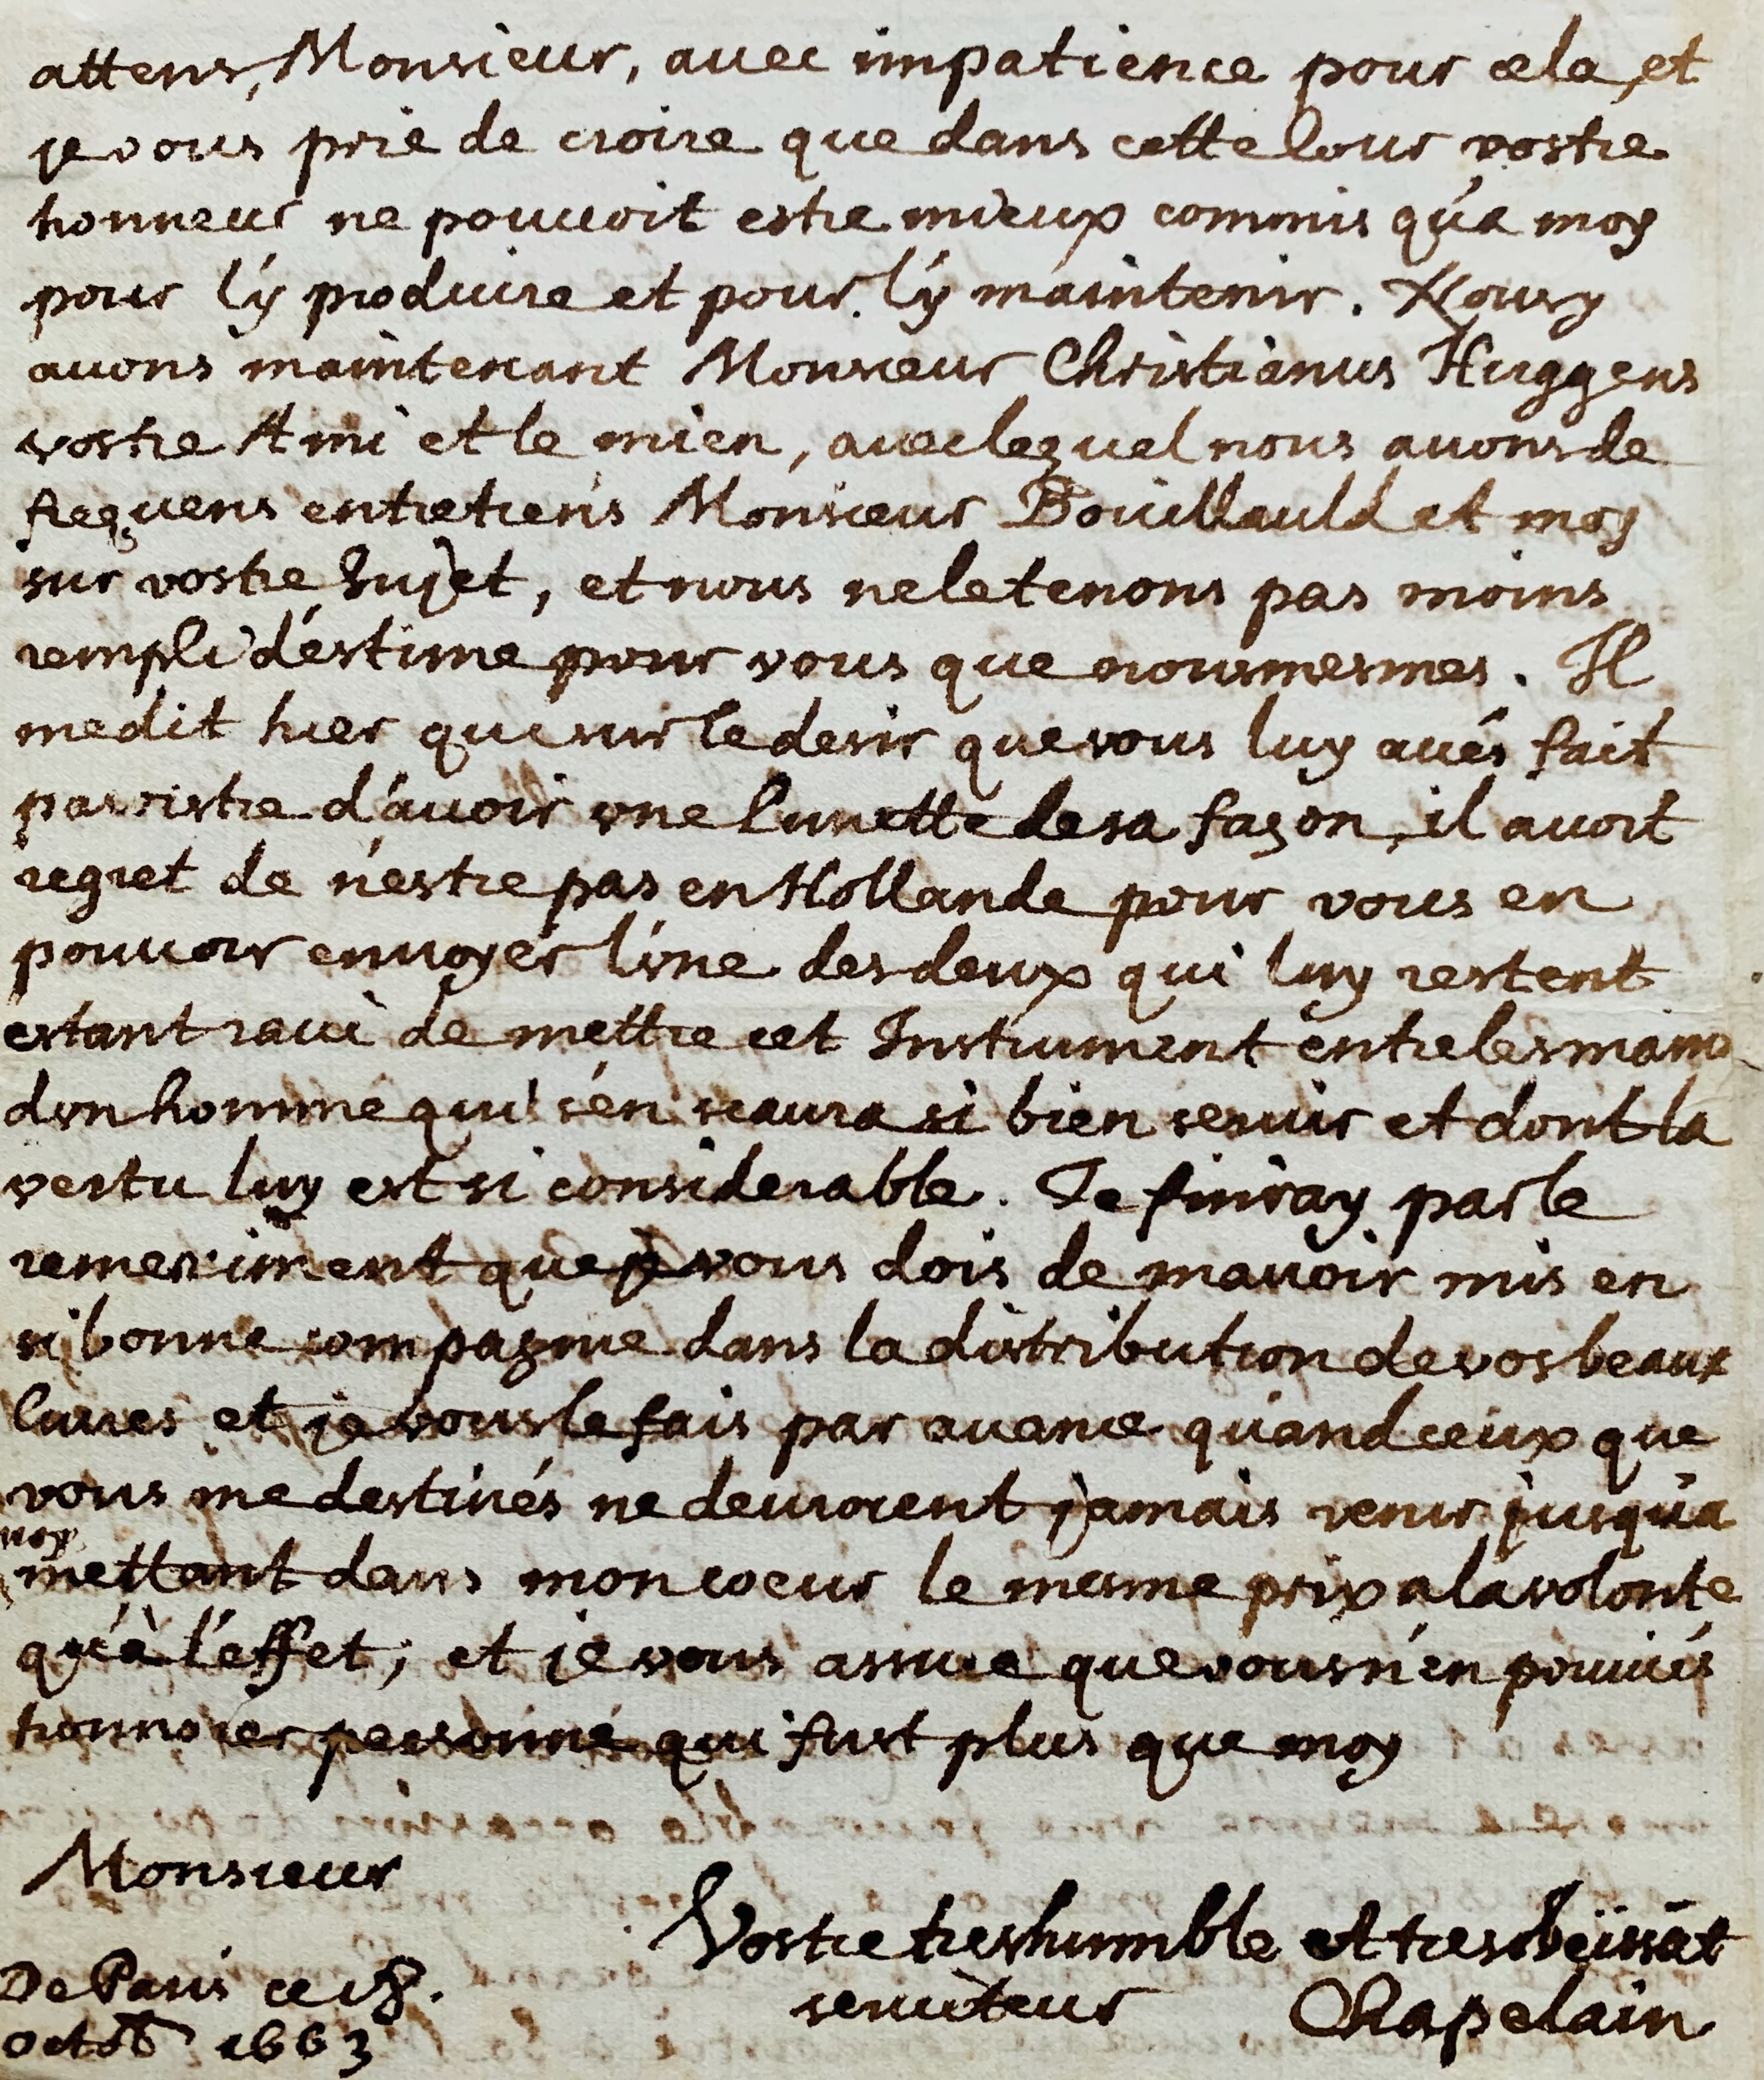 attens, Monsieur, auec impatience pour cela, et
je vous prie de croire que dans cette Cour vostre
honneur ne pouuoit estre mieux commis qu'a moy
pour l'y produire et pour l'y maintenir. Nous y
auons maintenant Monsieur Christianus Huggens
vostre Ami et le mien, auec lequel nous auons de
frequens entretiens Monsieur Bouillauld et moy
sur vostre sujet, et nous ne le tenons pas moins
rempli d'estime pour vous que nousmesmes. Il
me dit hier que sur le desir que vous luy aués fait
paroistre d'auoir vne lunette de sa façon, il auoit
regret de n'estre pas en Hollande pour vous en
pouuoir enuoyer l'vne des deux qui luy restent
estant raui de mettre cet Instrument entre les mains
dvn homme qui s'en scaura si bien seruir et dont la
vertu luy est si considerable. Je finiray par le
remerciment que je vous dois de mauoir mis en
si bonne compagnie dans la distribution de vos beaux
liures et je vous le fais par auance quand ceux que
vous me destinés ne deuroient jamais venir jusqu'a
moy
mettant dans mon coeur le mesme prix a la volonte
qu'à l'effet; et je vous assure que vous n'en pouuiés
honnorer personne qui fust plus que moy
Monsieur
Vostre treshumble et tresobeïssãt
seruiteur Chapelain
De Paris ce 18.
Octob 1663